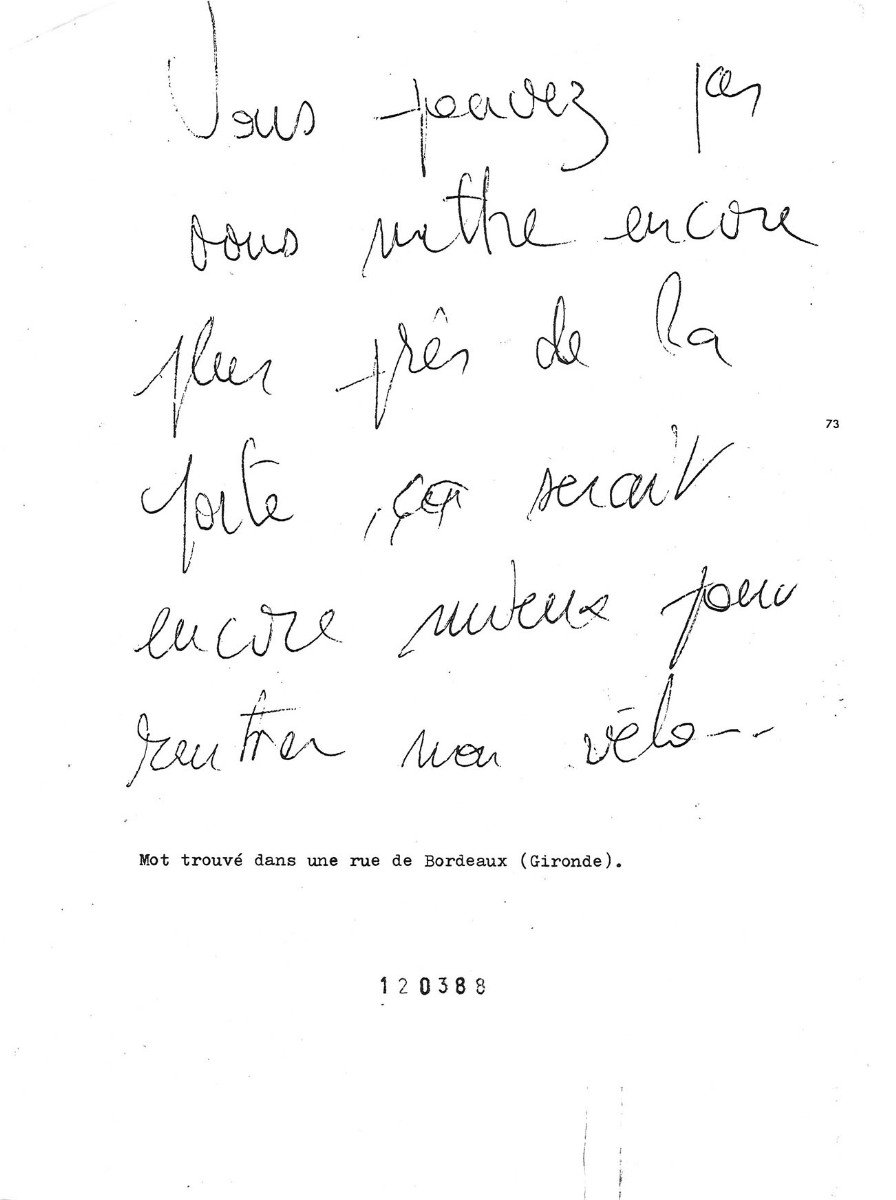 Vous pouvez pas
vous mettre encore
plus près de la
73
porte, ça serait
encore mieux pour
rentrer mon vélo--
Mot trouvé dans une rue de Bordeaux (Gironde).
120388